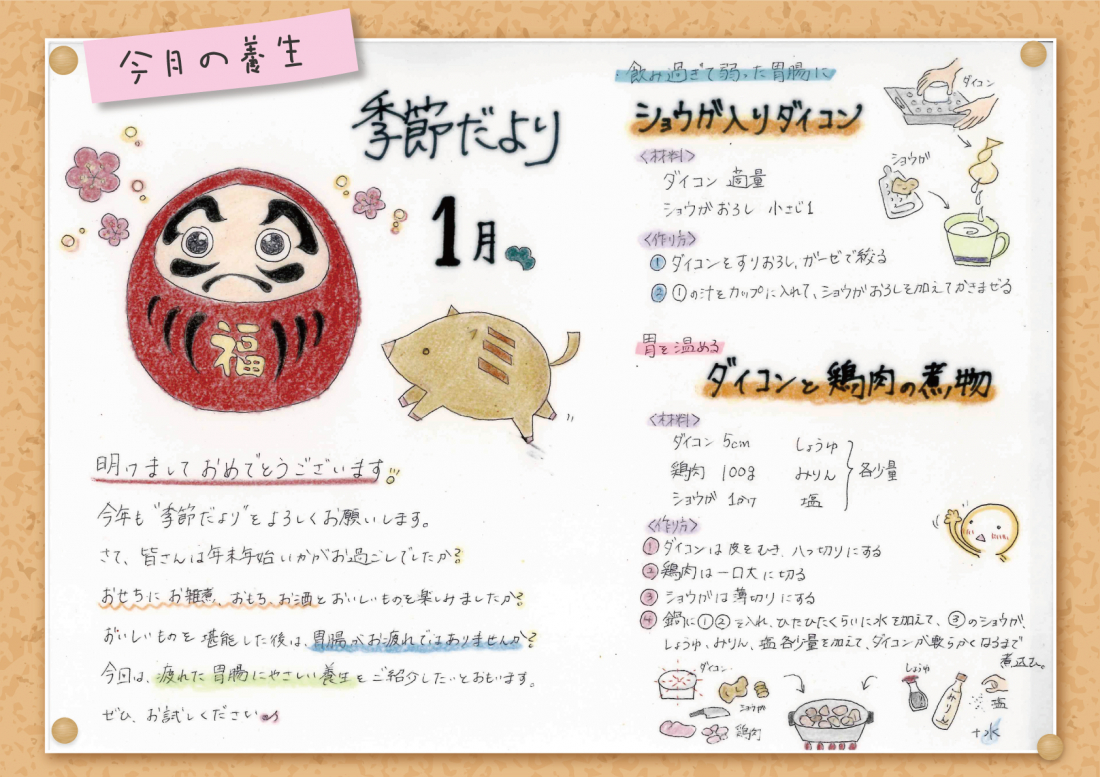 今月の養生
季節だより
1月
福
明けましておめでとうございます!!
今年も"季節だより"をよろしくお願いします。
さて、皆さんは年末年始いかがお過ごしでしたか?
おせちに お雑煮、おもち、お酒とおいしいものを楽しみましたか?
おいしいものを堪能した後は、胃腸がお疲れではありませんか?
今回は、疲れた胃腸にやさしい養生をご紹介したいとおもいます。
ぜひ、お試しください♪
飲み過ぎで弱った胃腸に
ショウガ入りダイコン
<材料>
ダイコン 適量
ショウガおろし 小さじ1
<作り方>
① ダイコンをすりおろし、ガーゼで絞る
② ①の汁をカップに入れて、ショウガおろしを加えてかきまぜる
ダイコン
ショウガ
胃を温める
ダイコンと鶏肉の煮物
<材料>
ダイコン 5cm
鶏肉 100g
ショウガ 1かけ
しょうゆ
みりん
塩
各少量
<作り方>
① ダイコンは皮をむき、八つ切りにする
② 鶏肉は一口大に切る
③ ショウガは薄切りにする
④ 鍋に①②を入れ、ひたひたくらいに水を加えて、③のショウガ、
しょうゆ、みりん、塩 各少量を加えて、ダイコンが軟らかくなるまで
煮込む。
ダイコン
ショウガ
鶏肉
しょうゆ
みりん
塩
+水